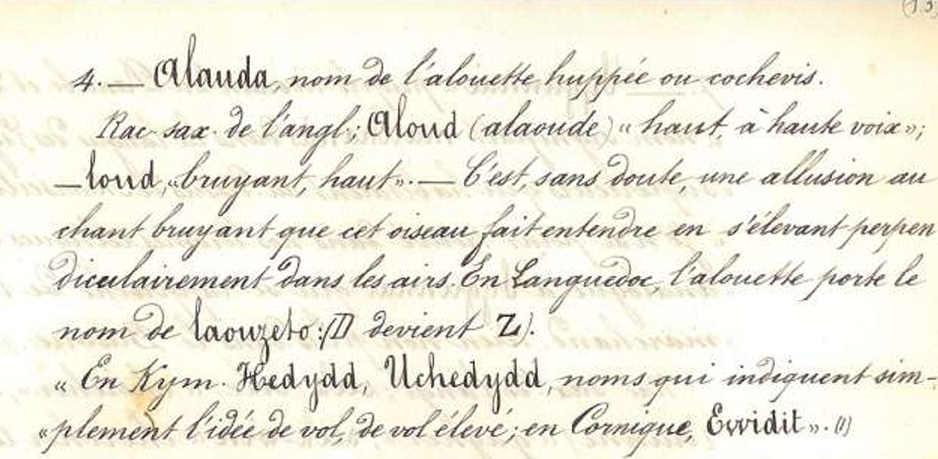 (13)
4. — Alauda, nom de l'alouette huppée ou cochevis.
Rac. sax. de l'angl.; Aloud (alaoude) « haut, à haute voix »;
— loud, « bruyant, haut ». — C'est, sans doute, une allusion au
chant bruyant que cet oiseau fait entendre en s'élevant perpen
diculairement dans les airs. En Languedoc, l'alouette porte le
nom de laouzeto: (D devient Z).
« En Kym. Hedydd, Uchedydd, noms qui indiquent sim-
« plement l'idée de vol, de vol élevé; en Cornique, Ewidit ». (1)